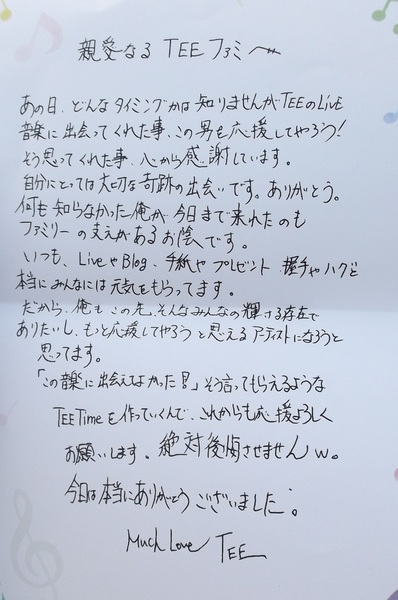 親愛なる TEE ファミ〜
あの日、どんなタイミングかは知りませんがTEEのLive
音楽に出会ってくれた事、この男を応援してやろう!
そう思ってくれた事、心から感謝しています。
自分にとっては大切な奇跡の出会いです。ありがとう。
何も知らなかった俺が今日まで来れたのも
ファミリーの支えがあるお陰です。
いつも、LiveやBlog、手紙やプレゼント 握手やハグと
本当にみんなには元気をもらってます。
だから、俺も この先、そんなみんなの輝ける存在で
ありたいし、もっと応援してやろう と思えるアーティストになろうと
思ってます。
「この音楽に出会えてよかった!」そう言ってもらえるような
TEE Timeを作っていくんで、これからも応援よろしく
お願いします。絶対後悔させませんw。
今日は本当にありがとうございました。
Much Love TEE